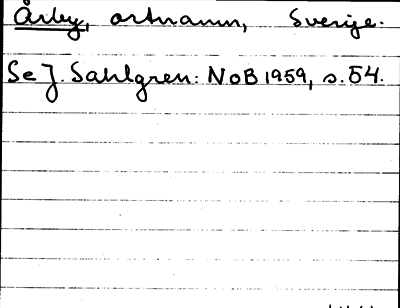 Årby, ortnamn, Sverige.
Se J. Sahlgren: NoB 1959, s. 54.